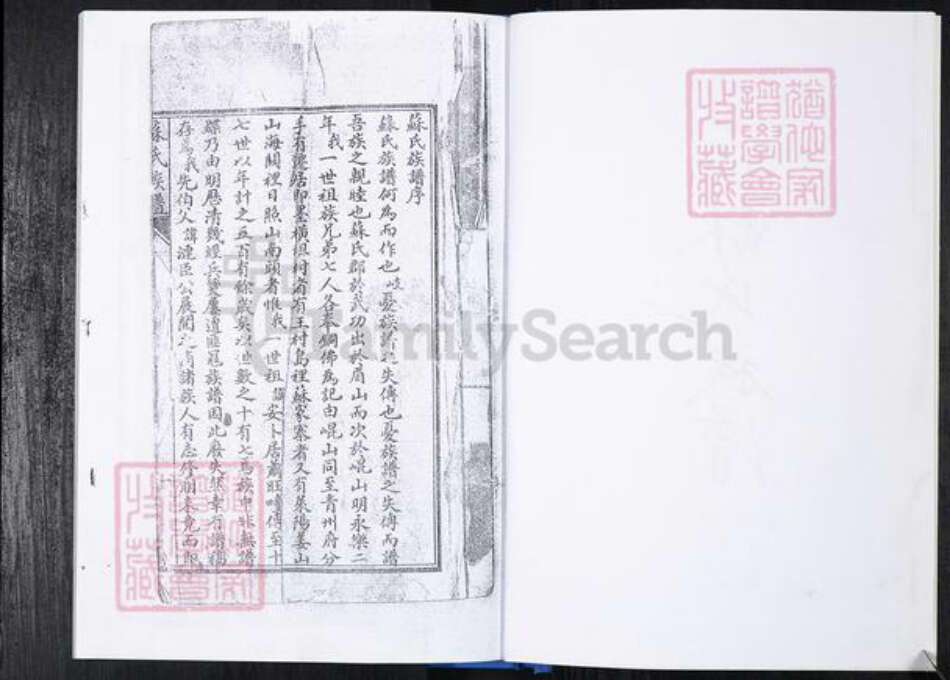 蘇氏族譜序
蘇氏族譜何為而作也岐憂族譜之失傳也憂族譜之失傳而譜
吾族之親睦也蘇氏郡於武功出於眉山而次於崐山明永樂二
年我一世祖族兄弟七人各奉銅佛為記由崐山同至青州府分
手有遷居即墨橫擔村者有王村島裡蘇家寨者又有萊陽姜山
山海關裡日照山南頭者惟我一世祖諱安卜居蕭旺嗚傳至十
七世以年計之五百有餘歲矣以世數之十有七焉族中非無譜
縣乃由明歷清幾經兵燹屢遭匪寇族譜因此廢失然幸有譜稿
存焉我先伯父諱漣臣公展閱之消諸族人有志修朋未竟而即
蘇氏族譜
猶他家譜學會收藏
猶他家譜學會收藏
FamilySearch